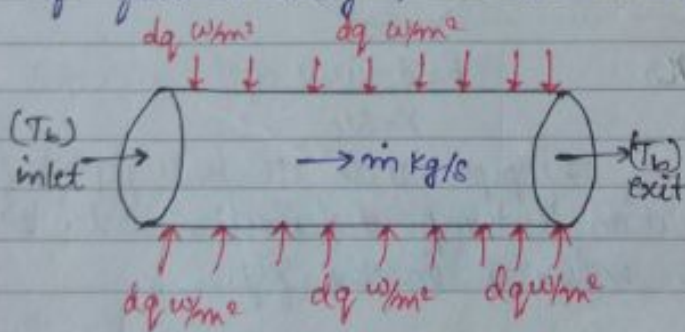 dq w/m² dq w/m²
(Tb) inlet
ṁ kg/s
(Tb) exit
dq w/m² dq w/m² dq w/m²